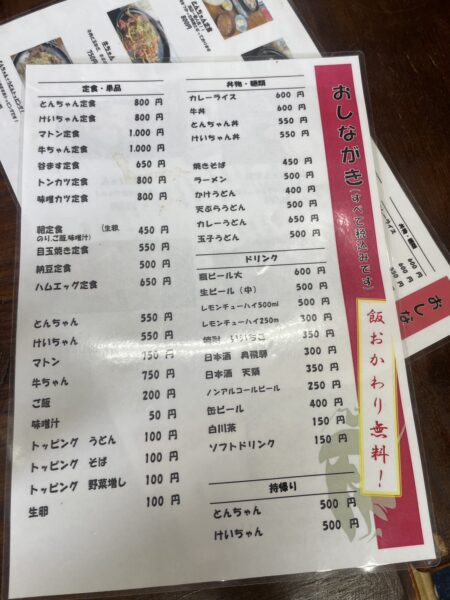 定食・単品
とんちゃん定食 800 円
けいちゃん定食 800 円
マトン定食 1,000 円
牛ちゃん定食 1,000 円
谷ます定食 650 円
トンカツ定食 800 円
味噌カツ定食 800 円
朝定食 (生卵、のり、ご飯、味噌汁) 450 円
目玉焼き定食 550 円
納豆定食 500 円
ハムエッグ定食 650 円
とんちゃん 550 円
けいちゃん 550 円
マトン 750 円
牛ちゃん 750 円
ご飯 200 円
味噌汁 50 円
トッピング うどん 100 円
トッピング そば 100 円
トッピング 野菜増し 100 円
生卵 100 円
丼物・麺類
カレーライス 600 円
牛丼 600 円
とんちゃん丼 550 円
けいちゃん丼 550 円
焼きそば 450 円
ラーメン 500 円
かけうどん 400 円
天ぷらうどん 500 円
カレーうどん 650 円
玉子うどん 500 円
ドリンク
瓶ビール大 600 円
生ビール (中) 500 円
レモンチューハイ500ml 500 円
レモンチューハイ250m 300 円
焼酎 いいちこ 350 円
日本酒 奥飛騨 350 円
日本酒 天領 350 円
ノンアルコールビール 250 円
缶ビール 400 円
白川茶 150 円
ソフトドリンク 150 円
持帰り
とんちゃん 500 円
けいちゃん 500 円
おしながき(すべて税込みです)
飯おかわり無料!
とんちゃん定食
800円
牛ちゃん
750円
丼物・麺類
カレーライス
600 円
600 円
550 円
おしな